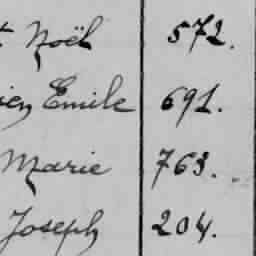 Noël 572.
Emile 691.
Marie 763.
Joseph 204.